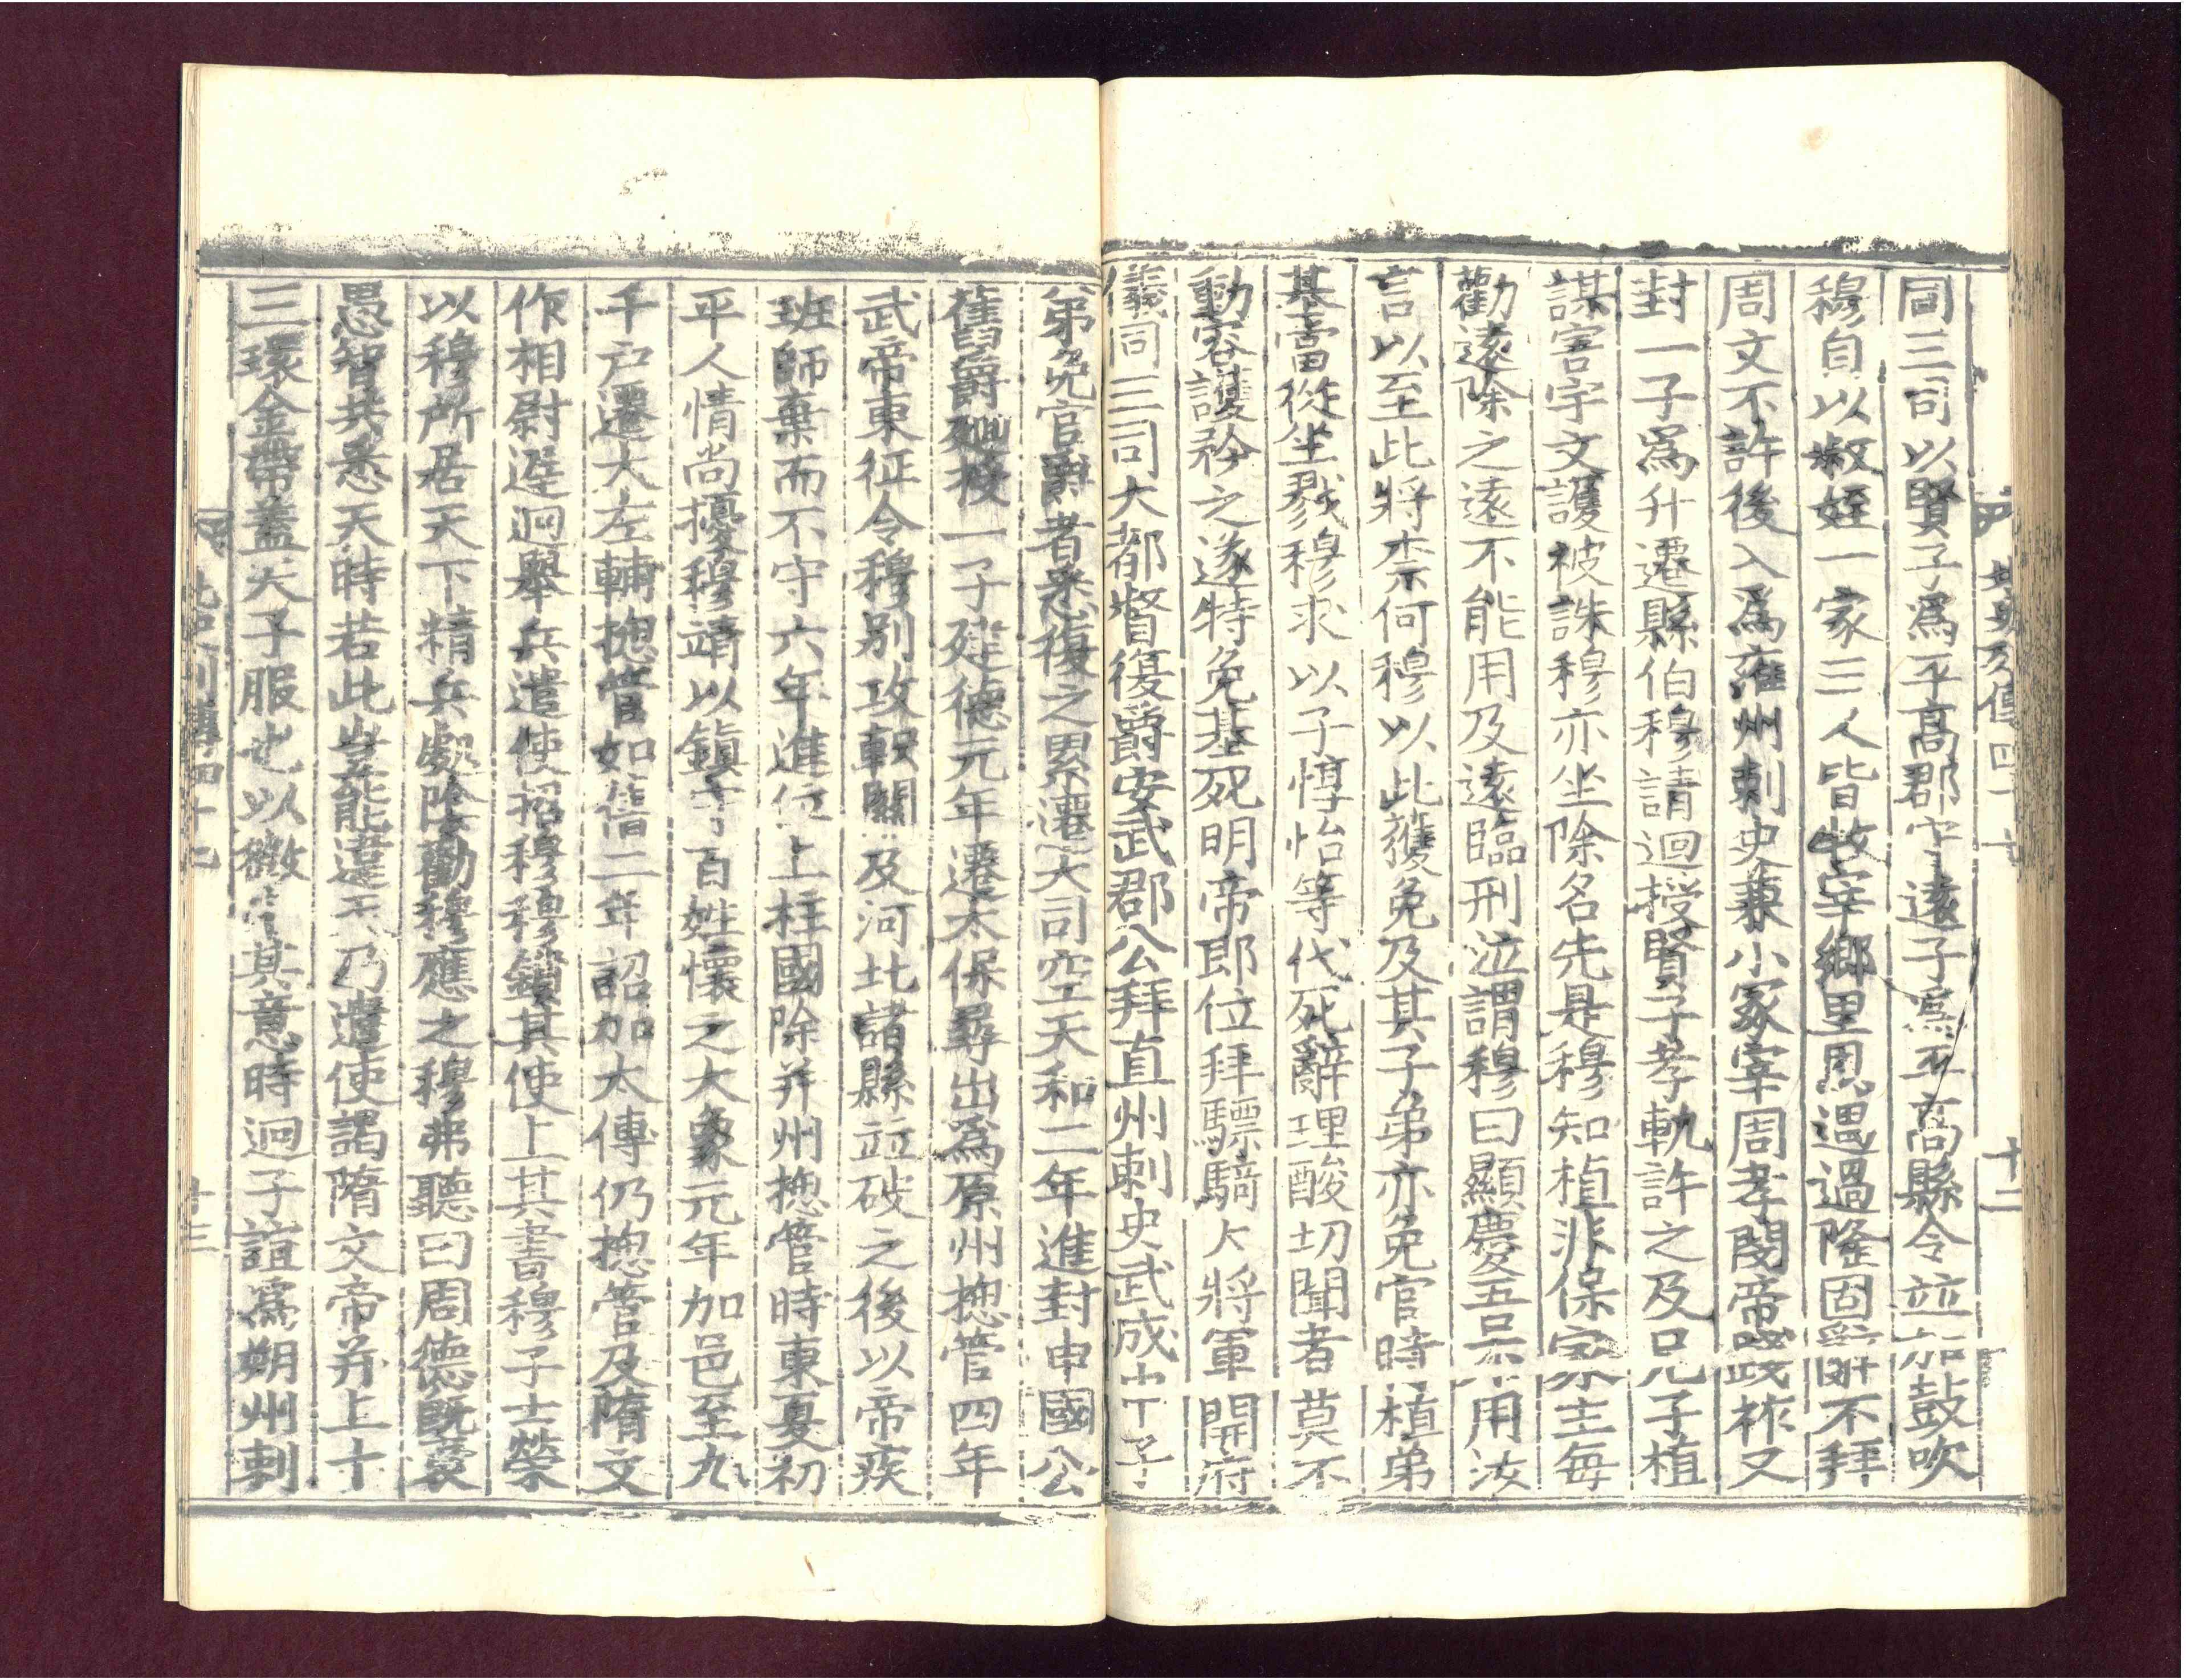 同三司以賢子爲平高郡守遠子爲平高縣令竝加鼓吹
穆自以叔姪一家三人皆牧宰鄉里恩遇過隆固辭不拜
周文不許後入爲雍州刺史兼小冢宰周孝閔帝踐祚又
封一子爲升遷縣伯穆請迴授賢子孝軌許之及兄子植
謀害宇文護被誅穆亦坐除名先是穆知植非保家主每
勸遠除之遠不能用及遠臨刑泣謂穆曰顯慶吾不用汝
言以至此將柰何穆以此獲免及其子弟亦免官時植弟
基當從坐戮穆求以子惇怡等代死辭理酸切聞者莫不
動容護矜之遂特免基死明帝即位拜驃騎大將軍開府
儀同三司大都督復爵安武郡公拜直州刺史武成中子
弟免官爵者悉復之累遷大司空天和二年進封申國公
舊爵迴授一子建德元年遷太保尋出爲原州揔管四年
武帝東征令穆别攻軹關及河北諸縣竝破之後以帝疾
班師棄而不守六年進位上柱國除并州揔管時東夏初
平人情尚擾穆靖以鎮守百姓懷之大象元年加邑至九
千户遷大左輔揔管如舊二年詔加太傅仍揔管及隋文
作相尉遲迥舉兵遣使招穆穆鎖其使上其書穆子士榮
以穆所居天下精兵處陰勸穆應之穆弗聽曰周德既衰
愚智共悉天時若此豈能違天乃遣使謁隋文帝并上十
三環金帶蓋天子服也以微言其意時迥子誼爲朔州刺
北史列傳四十七
十三